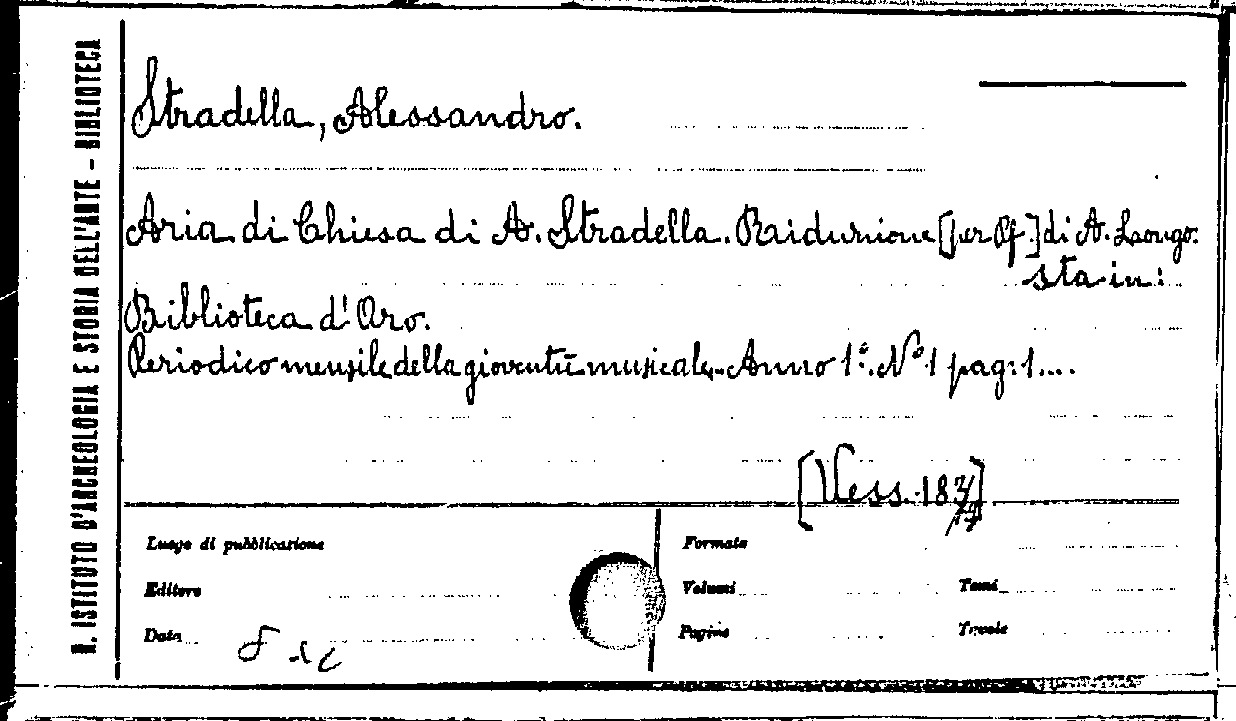 R. ISTITUTO D'ARCHEOLOGIA E STORIA DELL'ARTE - BIBLIOTECA
Stradella, Alessandro.
Aria di Chiesa di A. Stradella. Riduzione [per Pf.] di A. Longo.
sta in:
Biblioteca d'Oro.
Periodico mensile della gioventù musicale. Anno 1º. Nº 1 pag: 1....
[Vess. 183/
Luogo di pubblicazione
Formato
Editore
Volumi
Tomi
Data
Pagine
Tavole